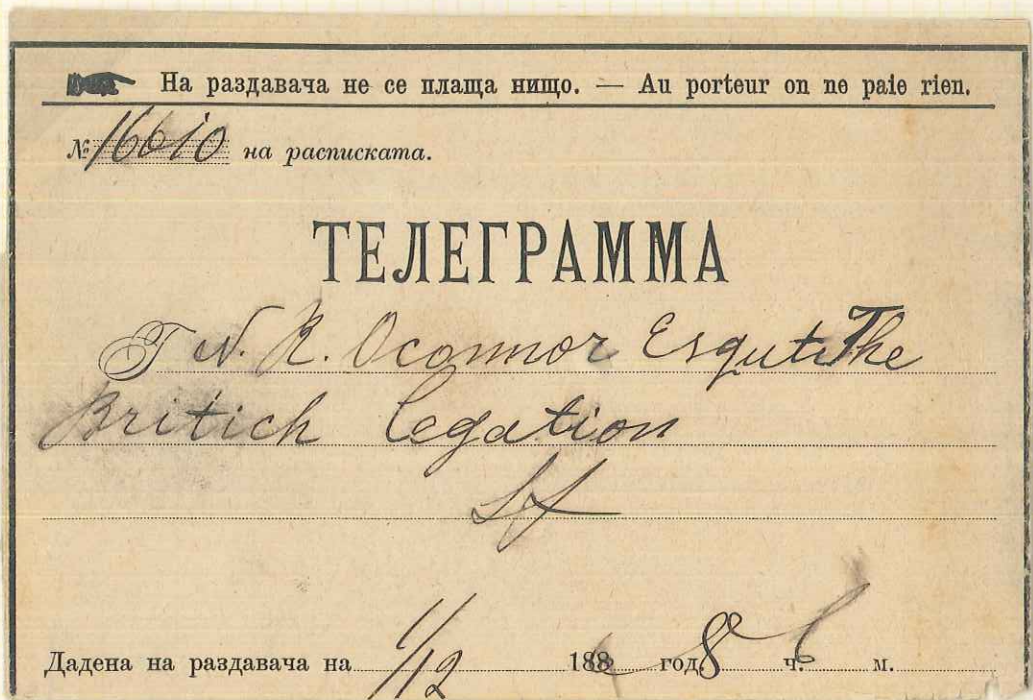 На раздавача не се плаща нищо. — Au porteur on ne paie rien.
№ 16610 на расписката.
ТЕЛЕГРАММА
Г N. R. Oconnor Esqut The
Britich Legation
Sf
Дадена на раздавача на 1/12 188 год. 8 ч. м.